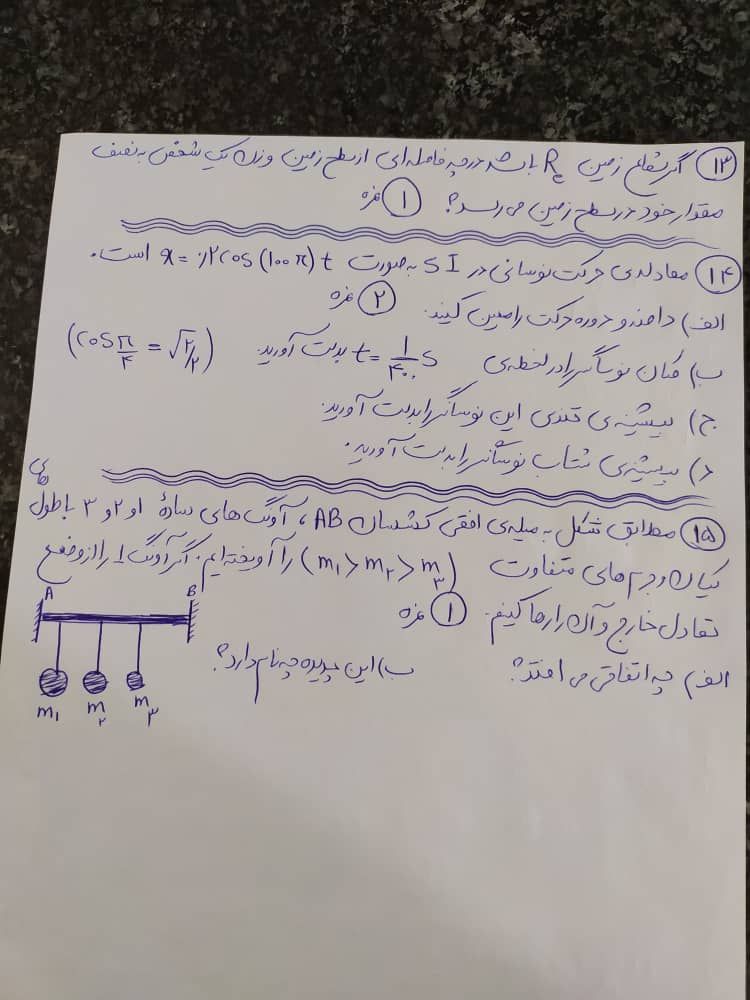 ۱۳) اگر شعاع زمین Re باشد در چه فاصله‌ای از سطح زمین وزن یک شخص به نصف
مقدار خود در سطح زمین می‌رسد؟ ۱ نمره
۱۴) معادله‌ی حرکت نوسانی در SI به صورت x = ۰/۲ cos (۱۰۰ π) t است.
الف) دامنه و دوره حرکت را معین کنید. ۲ نمره
ب) مکان نوسانگر را در لحظه‌ی t = ۱/۴۰۰ s بدست آورید. (cos π/۴ = √۲/۲)
ج) بیشینه‌ی تندی این نوسانگر را بدست آورید.
د) بیشینه‌ی شتاب نوسانگر را بدست آورید.
۱۵) مطابق شکل به میله‌ی افقی کشسان AB، آونگ های سادهٔ ۱ و ۲ و ۳ با طول های
یکسان و جرم های متفاوت (m۱ > m۲ > m۳) را آویخته ایم. اگر آونگ ۱ را از وضع
تعادل خارج و آن را رها کنیم. ۱ نمره
الف) چه اتفاقی می افتد؟ ب) این پدیده چه نام دارد؟
A B
m۱ m۲ m۳